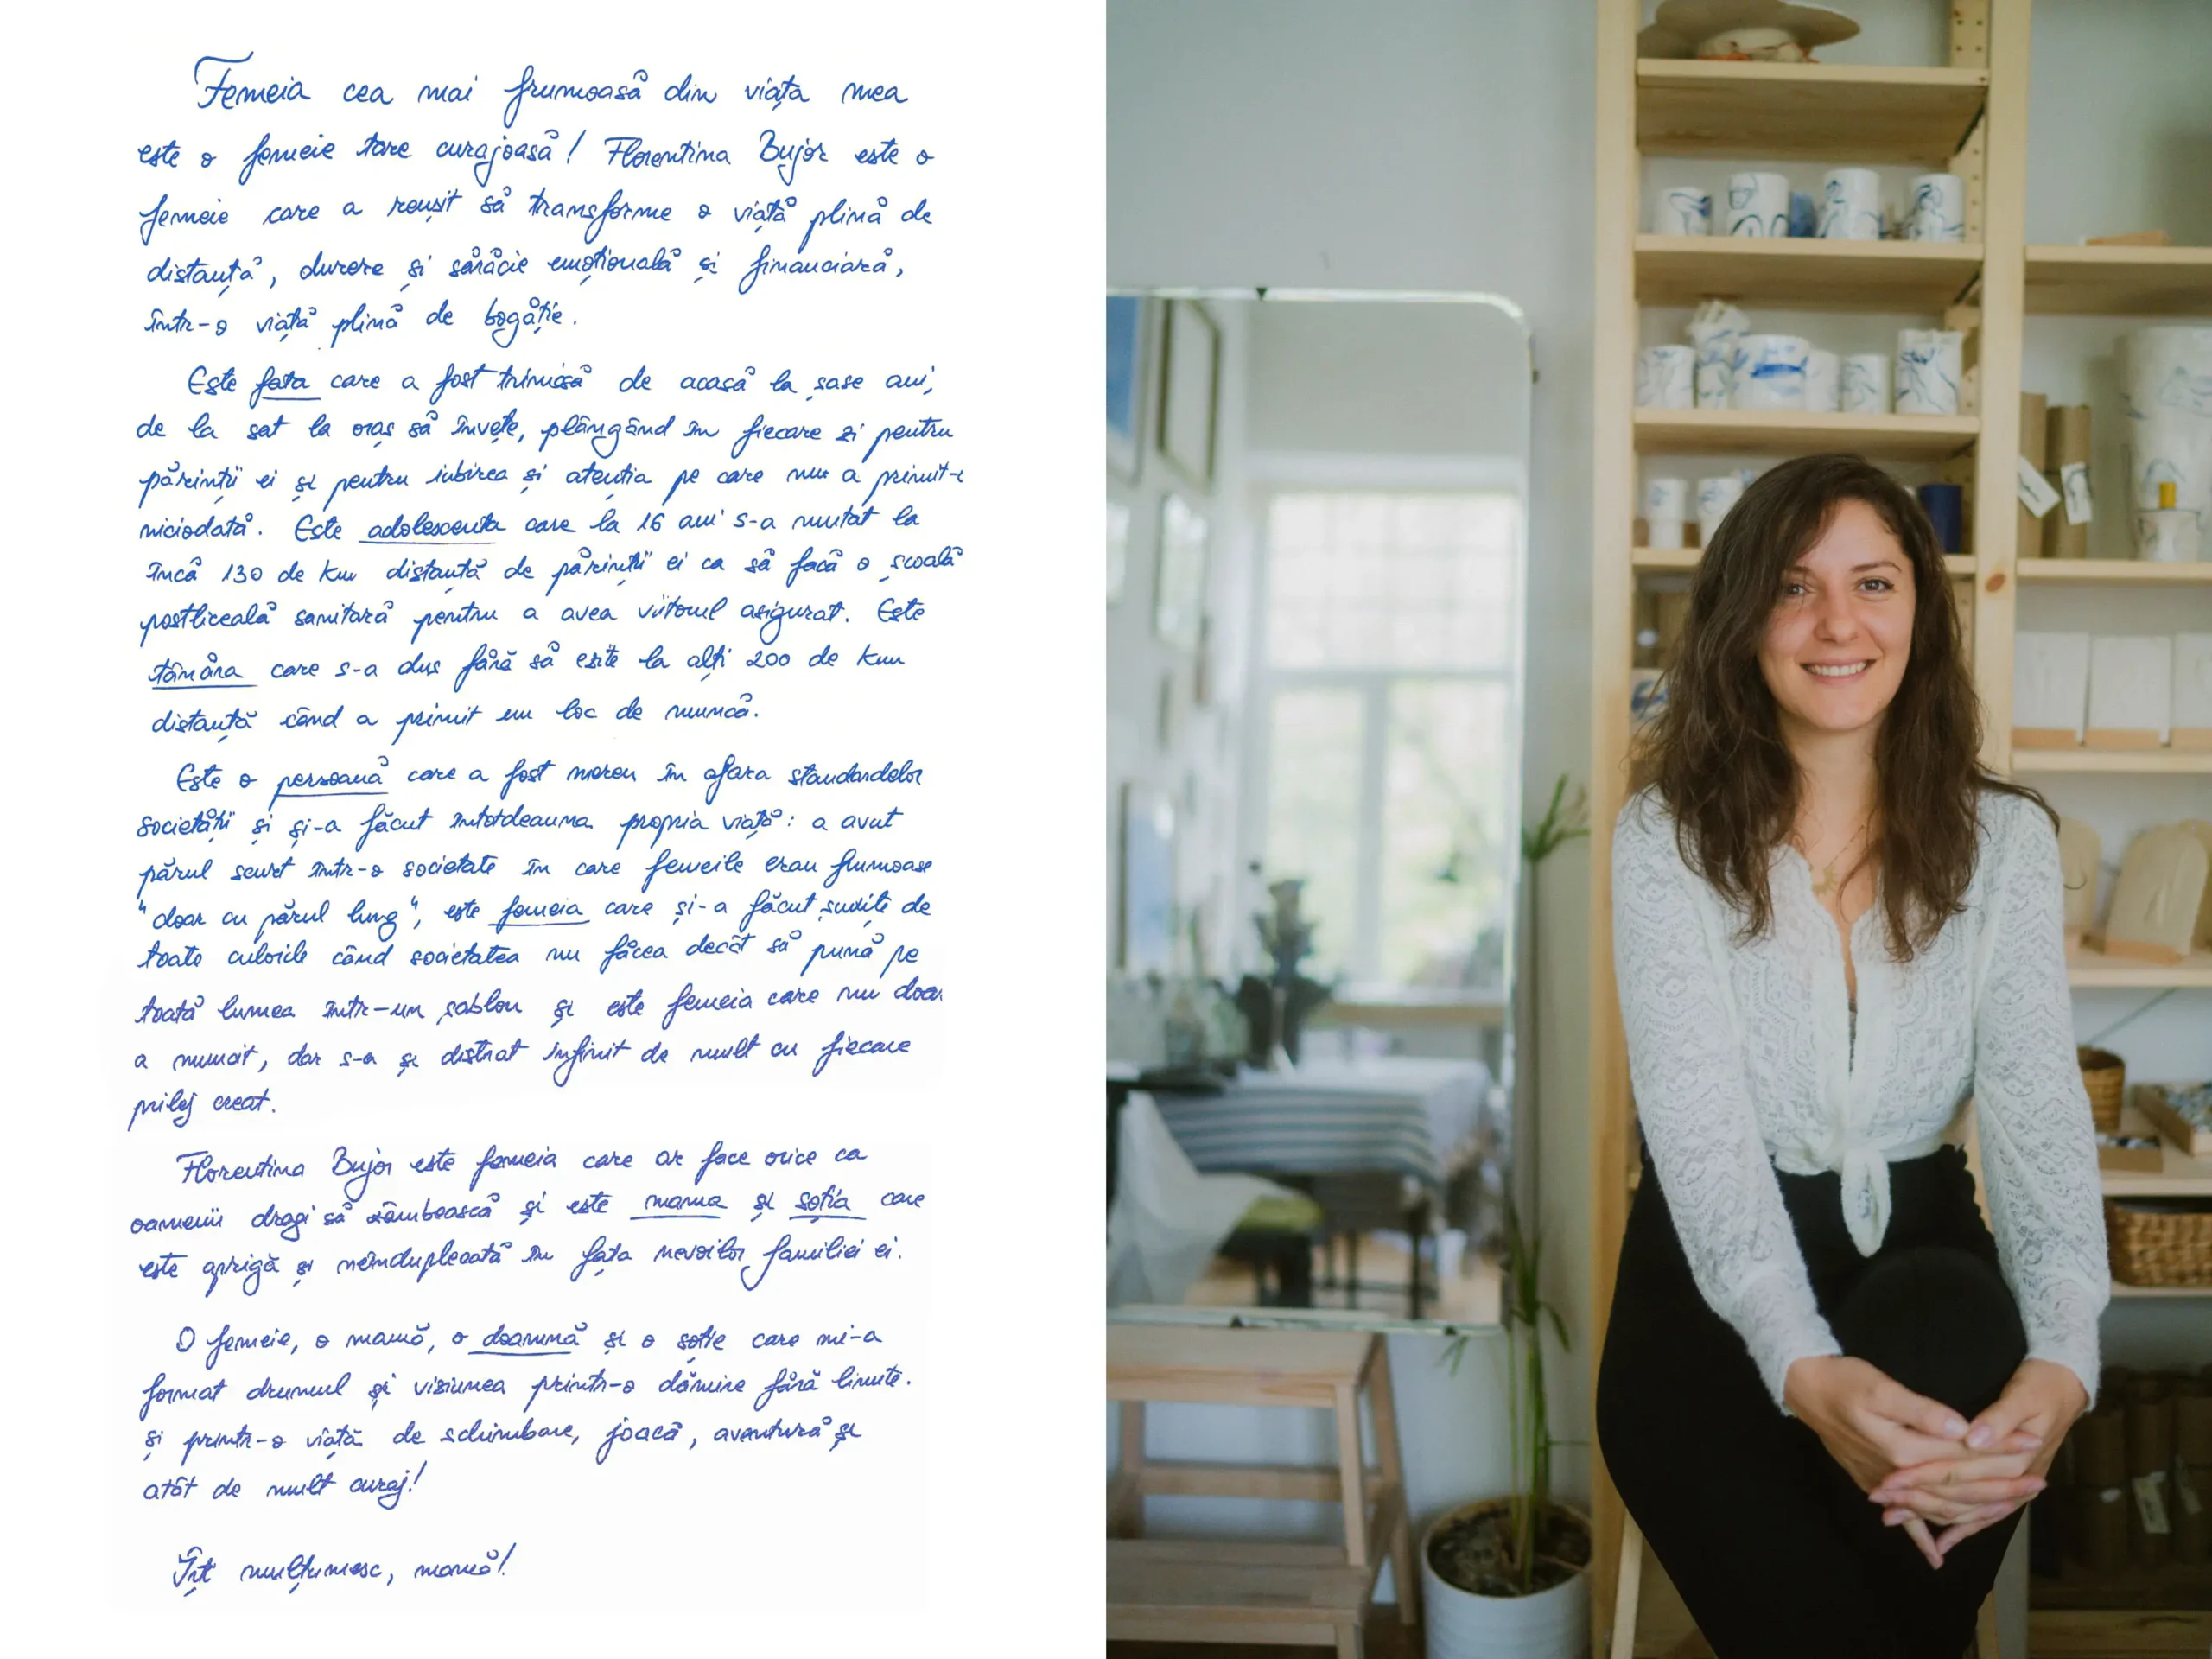 Femeia cea mai frumoasă din viața mea
este o femeie tare curajoasă! Florentina Bujor este o
femeie care a reușit să transforme o viață plină de
distanță, durere și sărăcie emoțională și financiară,
într-o viață plină de bogăție.
Este fata care a fost trimisă de acasă la șase ani,
de la sat la oraș să învețe, plângând în fiecare zi pentru
părinții ei și pentru iubirea și atenția pe care nu a primit-o
niciodată. Este adolescenta care la 16 ani s-a mutat la
încă 130 de km distanță de părinții ei ca să facă o școală
postliceală sanitară pentru a avea viitorul asigurat. Este
tânăra care s-a dus fără să ezite la alți 200 de km
distanță când a primit un loc de muncă.
Este o persoană care a fost mereu în afara standardelor
societății și și-a făcut întotdeauna propria viață: a avut
părul scurt într-o societate în care femeile erau frumoase
"doar cu părul lung", este femeia care și-a făcut șuvițe de
toate culorile când societatea nu făcea decât să pună pe
toată lumea într-un șablon și este femeia care nu doar
a muncit, dar s-a și distrat infinit de mult cu fiecare
prilej creat.
Florentina Bujor este femeia care ar face orice ca
oamenii dragi să zâmbească și este mama și soția care
este aprigă și neînduplecată în fața nevoilor familiei ei.
O femeie, o mamă, o doamnă și o soție care mi-a
format drumul și viziunea printr-o dăruire fără limite.
și printr-o viață de schimbare, joacă, aventură și
atât de mult curaj!
Îți mulțumesc, mamă!